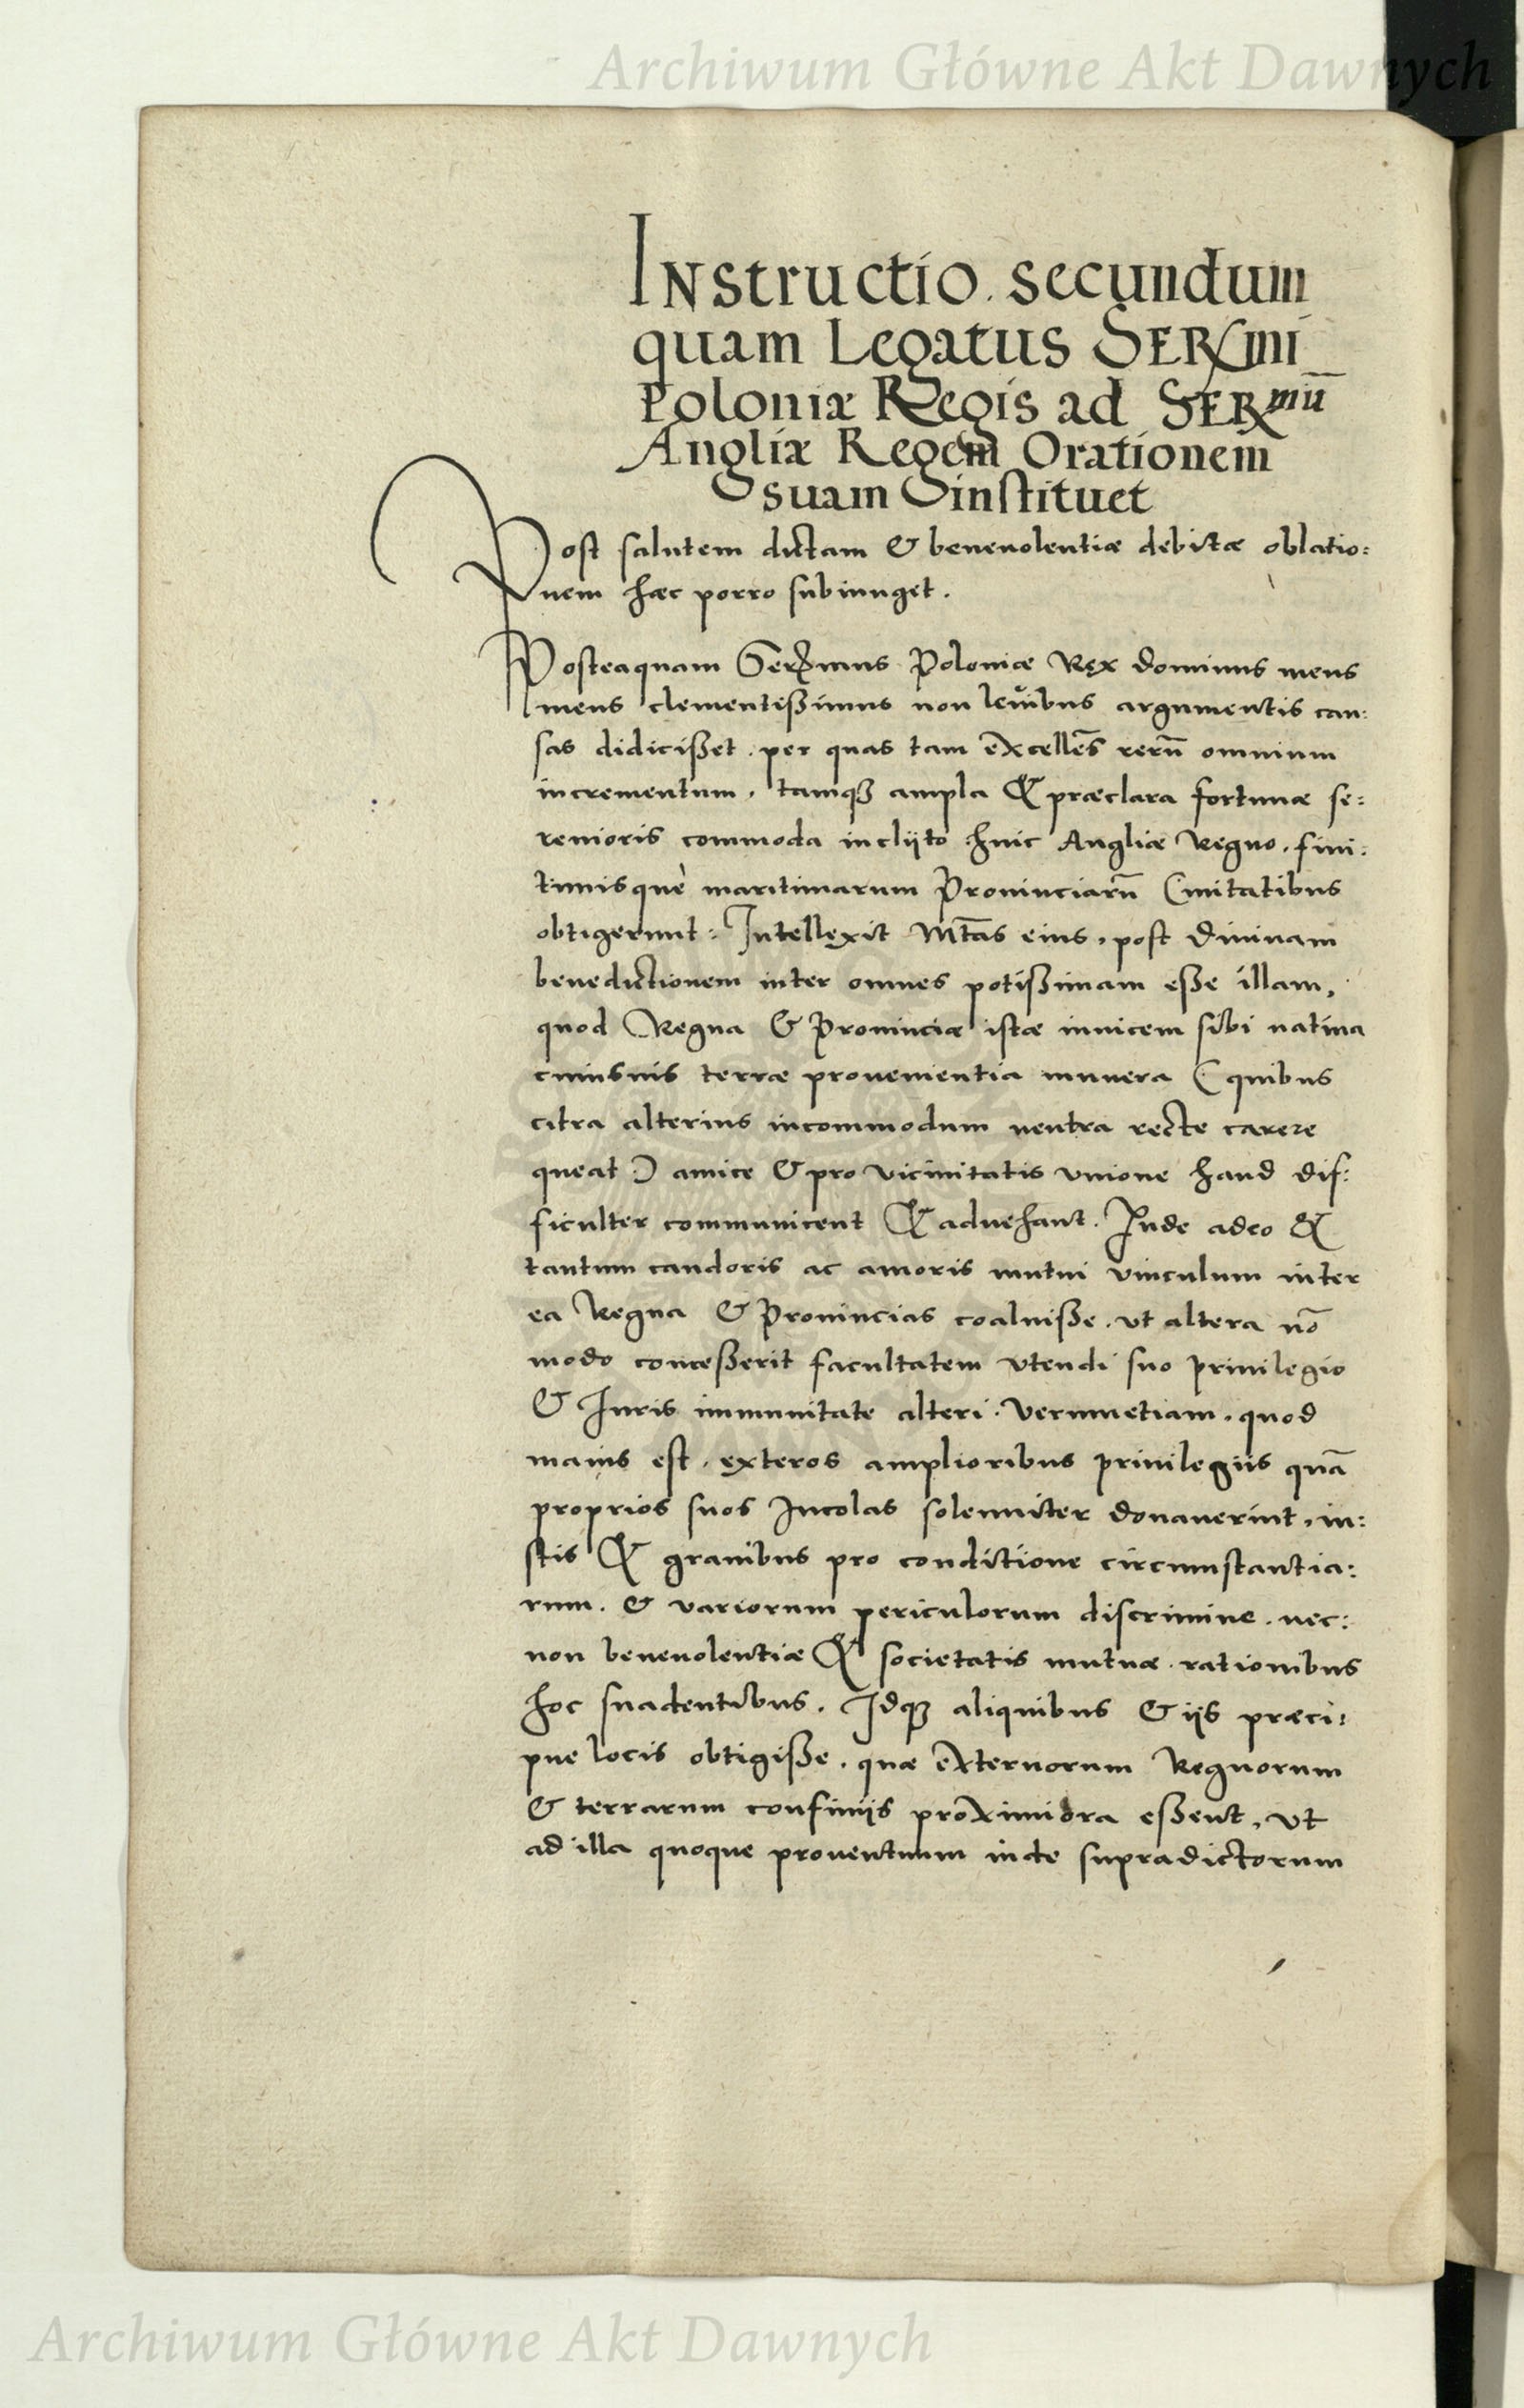 Archiwum Główne Akt Dawnych
Instructio. secundum
quam Legatus SERmi
Poloniæ Regis ad SERmū
Angliæ Regem Orationem
suam instituet
Post salutem dictam & beneuolentiæ debitæ oblatio:
nem hæc porro subiunget.
Posteaquam Sermus Poloniæ Rex dominus meus
meus clementißimus non leuibus argumentis cau:
sas didicißet. per quas tam excellēs rerū omnium
incrementum, tamqȝ ampla & præclara fortunæ se:
renioris commoda inclijto huic Angliæ Regno. fini:
timisquè maritimarum Prouinciarū Ciuitatibus
obtigerunt: Intellexit Mtās eius, post Diuinam
benedictionem inter omnes potißimam eße illam,
quod Regna & Prouinciæ istæ inuicem sibi natiua
cuiusuis terræ prouenientia munera (quibus
citra alterius incommodum neutra recte carere
queat) amice & pro vicinitatis vnione haud dif:
ficulter communicent & aduehant. Inde adeo &
tantum candoris ac amoris mutui vinculum inter
ea Regna & Prouincias coaluiße. vt altera nō
modo conceßerit facultatem vtendi suo priuilegio
& Iuris immunitate alteri. Verumetiam. quod
maius est. exteros amplioribus priuilegiis quā
proprios suos Incolas solenniter donauerint. iu:
stis & grauibus pro conditione circumstantia:
rum. & variorum periculorum discrimine. nec:
non beneuolentiæ & societatis mutuæ rationibus
hoc suadentibus. Idqȝ aliquibus & ijs præci:
pue locis obtigiße. quæ externorum Regnorum
& terrarum confinijs proximiora eßent, vt
ad illa quoque prouentuum inde supradictorum
Archiwum Główne Akt Dawnych